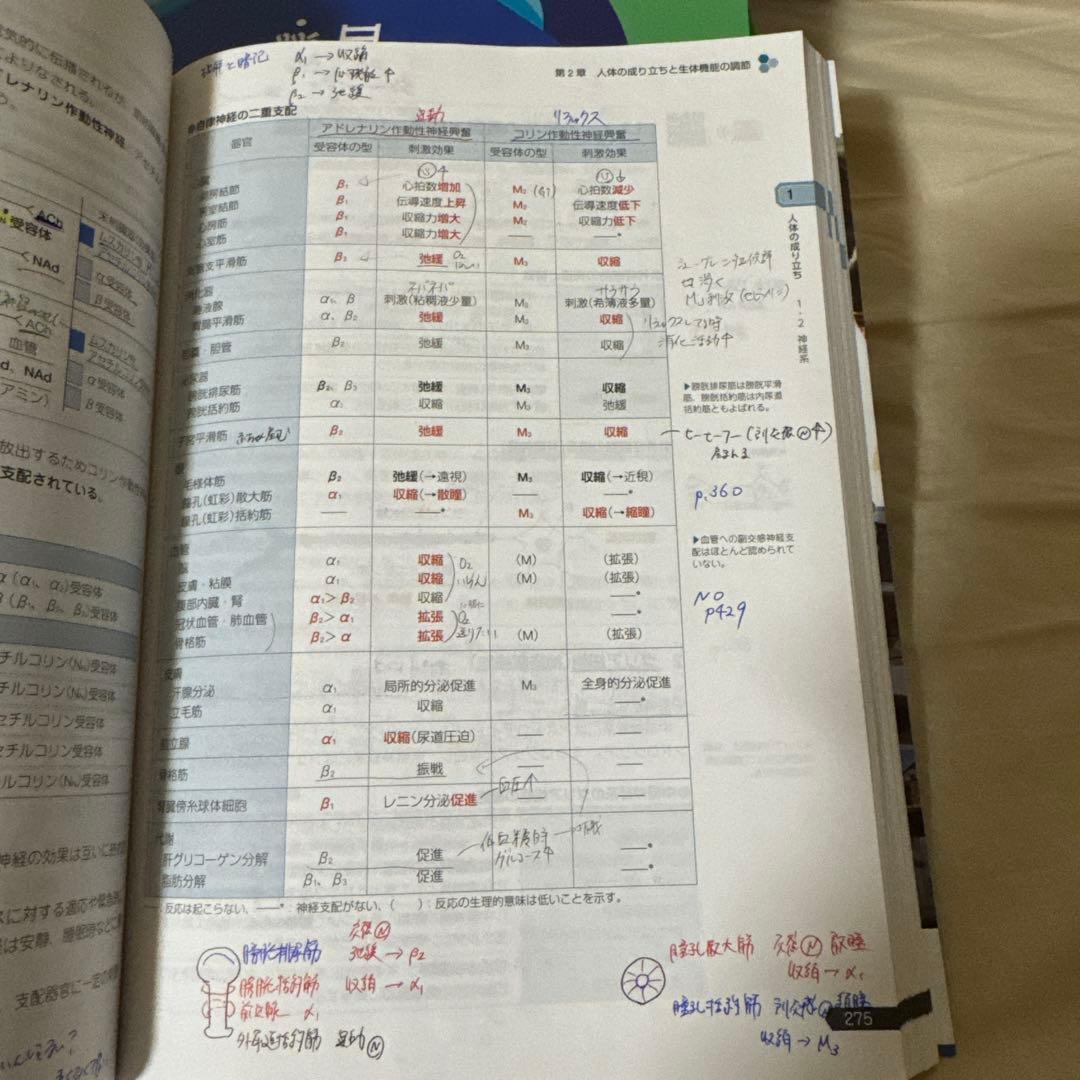 α₁ → 収縮
β₁ → 心機能↑
β₂ → 弛緩
第2章 人体の成り立ちと生体機能の調節
自律神経の二重支配
運動 リラックス
器官 アドレナリン作動性神経興奮 コリン作動性神経興奮
受容体の型 刺激効果 受容体の型 刺激効果
房結節 β₁ 心拍数増加 M₂ 心拍数減少
室結節 β₁ 伝導速度上昇 M₂ 伝導速度低下
心房筋 β₁ 収縮力増大 M₂ 収縮力低下
心室筋 β₁ 収縮力増大 —— ——*
支平滑筋 β₂ 弛緩 O₂ M₃ 収縮
消化器 ネバネバ サラサラ
液腺 α₁、β 刺激(粘稠液少量) M₃ 刺激(希薄液多量)
胃腸平滑筋 α、β₂ 弛緩 M₃ 収縮
・胆管 β₂ 弛緩 M₃ 収縮
口渇
リラックスしてる時
消化活動↑
尿器
膀胱排尿筋 β₂、β₃ 弛緩 M₃ 収縮
膀胱括約筋 α₁ 収縮 M₃ 弛緩
▶膀胱排尿筋は膀胱平滑
筋、膀胱括約筋は内尿道
括約筋ともよばれる。
子宮平滑筋 β₂ 弛緩 M₃ 収縮
毛様体筋 β₂ 弛緩(→遠視) M₃ 収縮(→近視)
瞳孔(虹彩)散大筋 α₁ 収縮(→散瞳) —— ——*
瞳孔(虹彩)括約筋 —— ——* M₃ 収縮(→縮瞳)
p.360
▶血管への副交感神経支
配はほとんど認められて
いない。
NO
p429
血管
脳 α₁ 収縮 (M) (拡張)
皮膚・粘膜 α₁ 収縮 (M) (拡張)
腹部内臓・腎 α₁>β₂ 収縮 ——*
冠状血管・肺血管 β₂>α₁ 拡張 ——*
骨格筋 β₂>α 拡張 (M) (拡張)
皮膚
汗腺分泌 α₁ 局所的分泌促進 M₃ 全身的分泌促進
立毛筋 α₁ 収縮 ——*
前立腺 α₁ 収縮(尿道圧迫) —— ——
骨格筋 β₂ 振戦 —— ——
腎臓傍糸球体細胞 β₁ レニン分泌促進 血圧↑ ——
代謝
肝グリコーゲン分解 β₂ 促進 ——*
脂肪分解 β₁、β₃ 促進 ——*
低血糖時
グルコース↑
——:反応は起こらない、——*:神経支配がない、( ):反応の生理的意味は低いことを示す。
交感Ⓝ
膀胱排尿筋 弛緩 → β₂
膀胱括約筋 収縮 → α₁
前立腺 α₁
外尿道括約筋 運動Ⓝ
瞳孔散大筋 交感Ⓝ 散瞳
収縮 → α₁
瞳孔括約筋 副交感Ⓝ 縮瞳
収縮 → M₃
275
1
人体の成り立ち
1・2 神経系
ACh
受容体
NAd
ACh
血管
d、NAd
アミン)
α受容体
β受容体
α受容体
β受容体
放出するためコリン作動性神
支配されている。
α(α₁、α₂)受容体
β(β₁、β₂、β₃)受容体
チルコリン(Nₙ)受容体
チルコリン(Nₙ)受容体
セチルコリン受容体
セチルコリン受容体
ルコリン(Nₘ)受容体
神経の効果は互いに拮抗
に対する適応や緊急
は安静、睡眠時など
支配器官に一定の